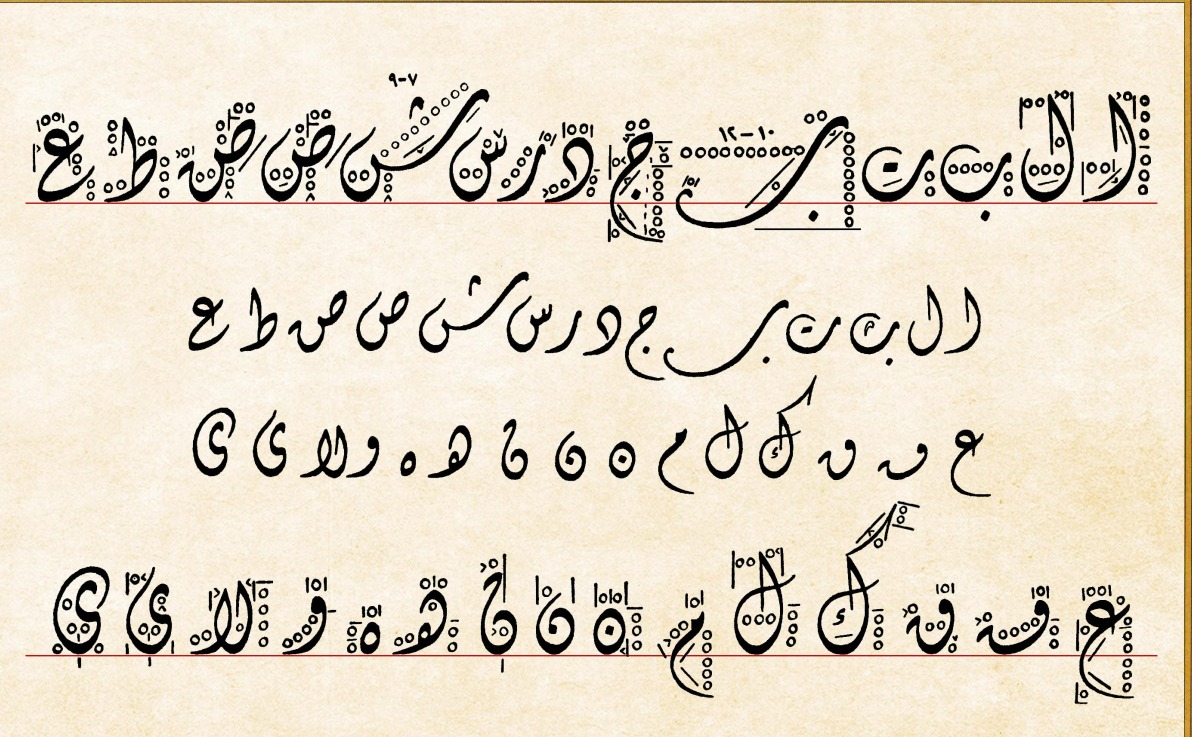 ٩-٧
١٢-١٠
ا ل ب ت ب ج د ر س ش ص ض ط ع
ا ل ب ت ب ج د ر س ش ص ص ط ع
ع ف ق ك ل م ن ن ن ه ه و لا ى ى
ع ف ق ك ل م ن ن ن ه ه و لا ي ي